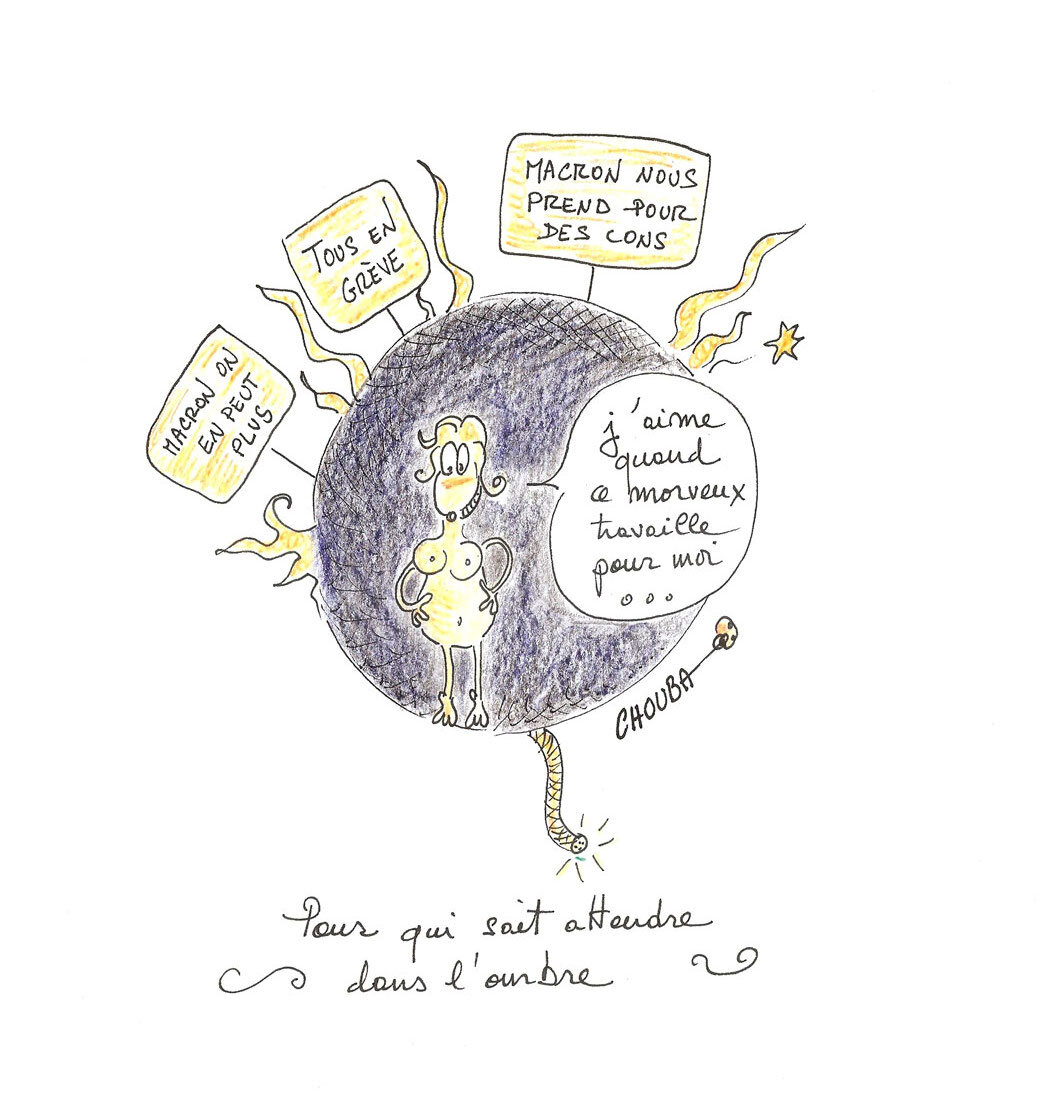 MACRON NOUS
PREND POUR
DES CONS
TOUS EN
GRÈVE
MACRON ON
EN PEUT
PLUS
j'aime
quand
ce morveux
travaille
pour moi
...
CHOUBA
Pour qui sait attendre
dans l'ombre